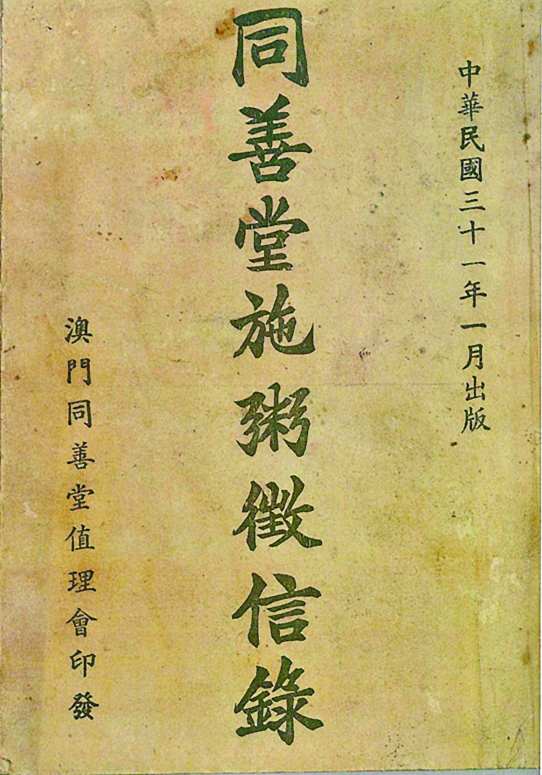 中華民國三十一年一月出版
同善堂施粥徵信錄
澳門同善堂值理會印發